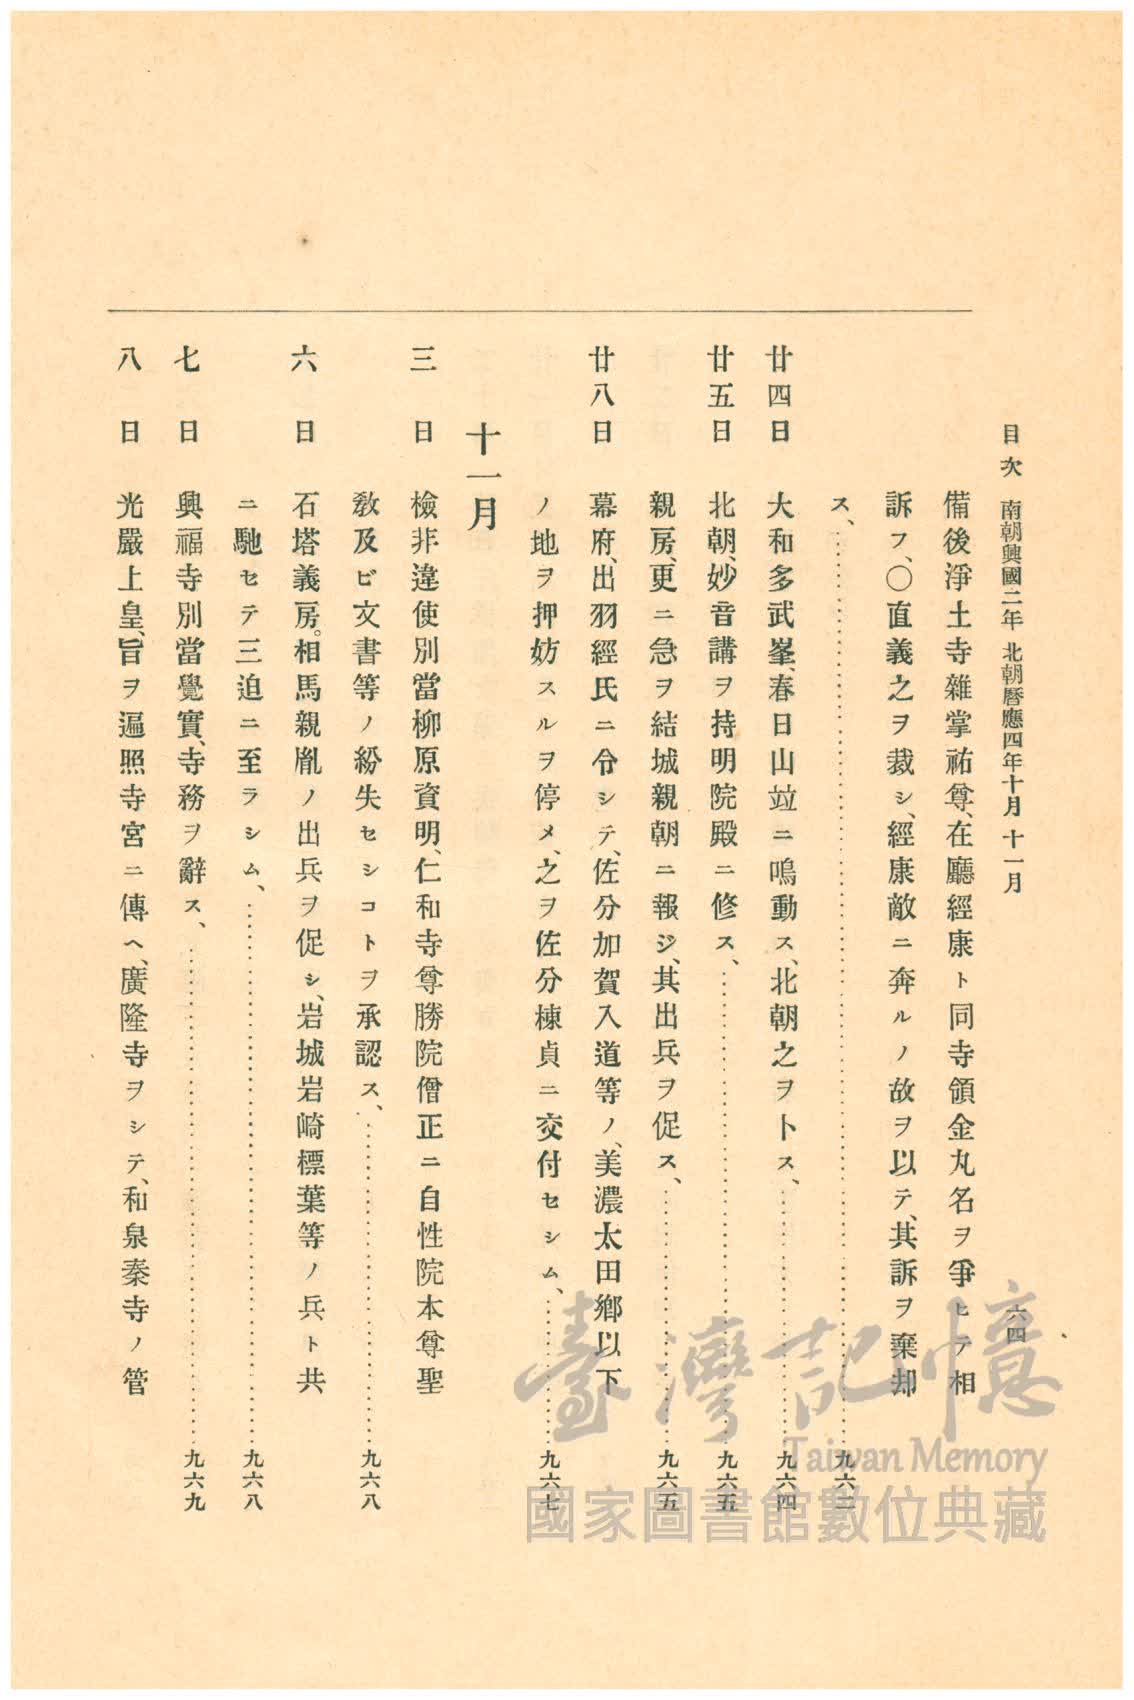 目次 南朝興國二年 北朝曆應四年十月 十一月 六四
備後淨土寺雜掌祐尊、在廳經康ト同寺領金丸名ヲ爭ヒテ相
訴フ、〇直義之ヲ裁シ、經康敵ニ奔ルノ故ヲ以テ、其訴ヲ棄却
ス、……九六二
廿四日 大和多武峯、春日山竝ニ鳴動ス、北朝之ヲトス、……九六四
廿五日 北朝、妙音講ヲ持明院殿ニ修ス、……九六五
親房、更ニ急ヲ結城親朝ニ報ジ、其出兵ヲ促ス、……九六五
廿八日 幕府、出羽經氏ニ令シテ、佐分加賀入道等ノ、美濃太田鄕以下
ノ地ヲ押妨スルヲ停メ、之ヲ佐分棟貞ニ交付セシム、……九六七
十一月
三日 檢非違使別當柳原資明、仁和寺尊勝院僧正ニ自性院本尊聖
敎及ビ文書等ノ紛失セシコトヲ承認ス、……九六八
六日 石塔義房。相馬親胤ノ出兵ヲ促シ、岩城岩崎標葉等ノ兵ト共
ニ馳セテ三迫ニ至ラシム、……九六八
七日 興福寺別當覺實、寺務ヲ辭ス、……九六九
八日 光嚴上皇、旨ヲ遍照寺宮ニ傳ヘ、廣隆寺ヲシテ、和泉秦寺ノ管
臺灣記憶
Taiwan Memory
國家圖書館數位典藏